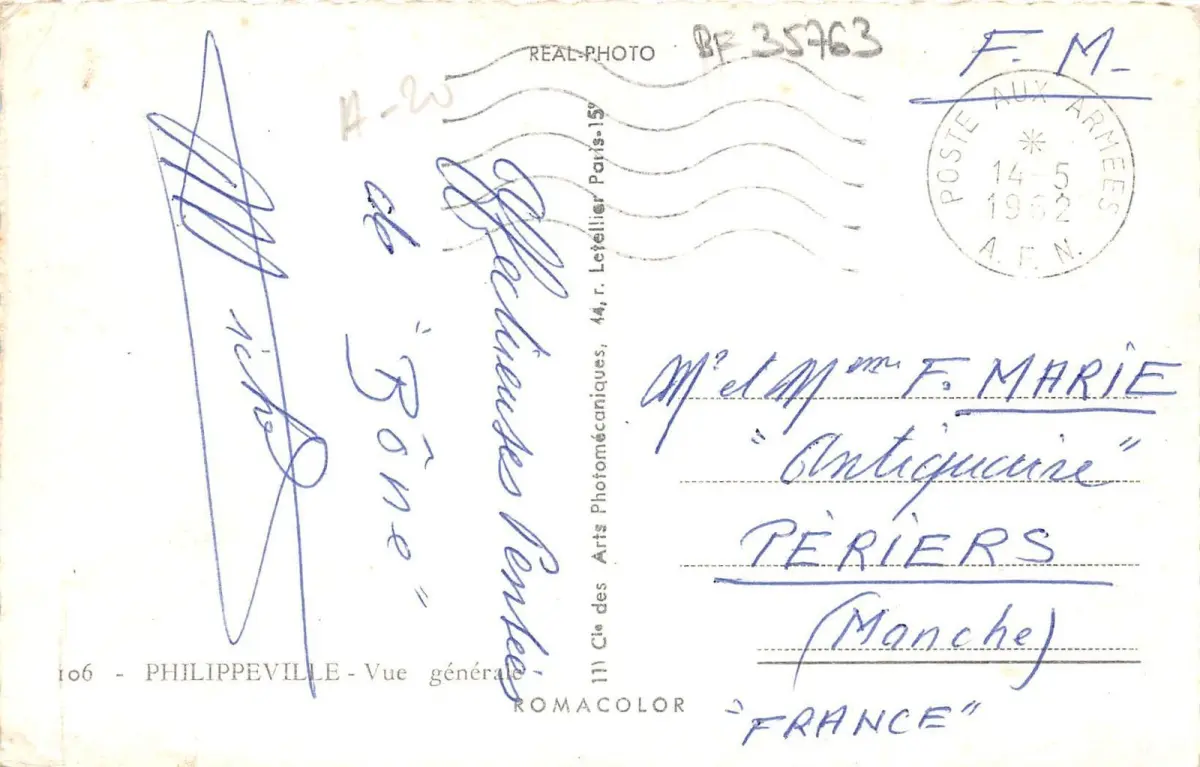 REAL-PHOTO
BF 35763
A-20
F. M.
POSTE AUX ARMEES
14-5
1962
A. F. N.
Affectueuses Pensées
de
"Bône"
Mr et Mme F. MARIE
"Antiquaire"
PÉRIERS
(Manche)
"FRANCE"
Cie des Arts Photomécaniques, 44, r. Letellier Paris-15e
106 - PHILIPPEVILLE - Vue générale
ROMACOLOR